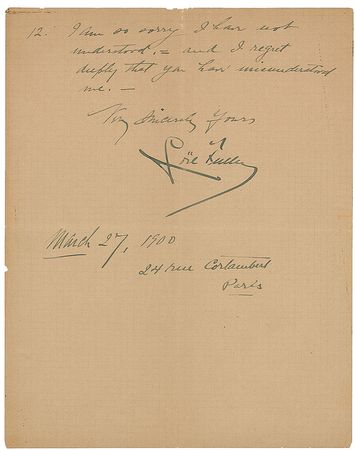 12. I am so sorry I have not
understood, = and I regret
deeply that you have misunderstood
me. —
Very Sincerely Yours
Loïe Fuller
March 27, 1900
24 rue Cortambert
Paris